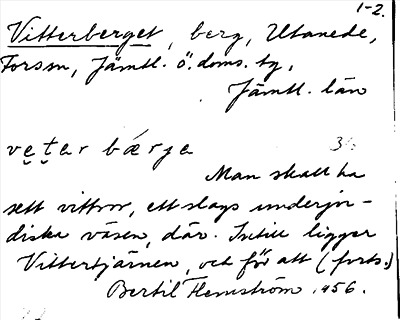 1-2.
Vitterberget, berg, Utanede,
Forsm, Jämtl. ö. doms. tg,
Jämtl. län
vẹtar bærja 3/5
Man skall ha
sett vittror, ett slags underjor-
diska väsen, där. Intill ligger
Vittertjärnen, och för att (forts.)
Bertil Flemström 1956.